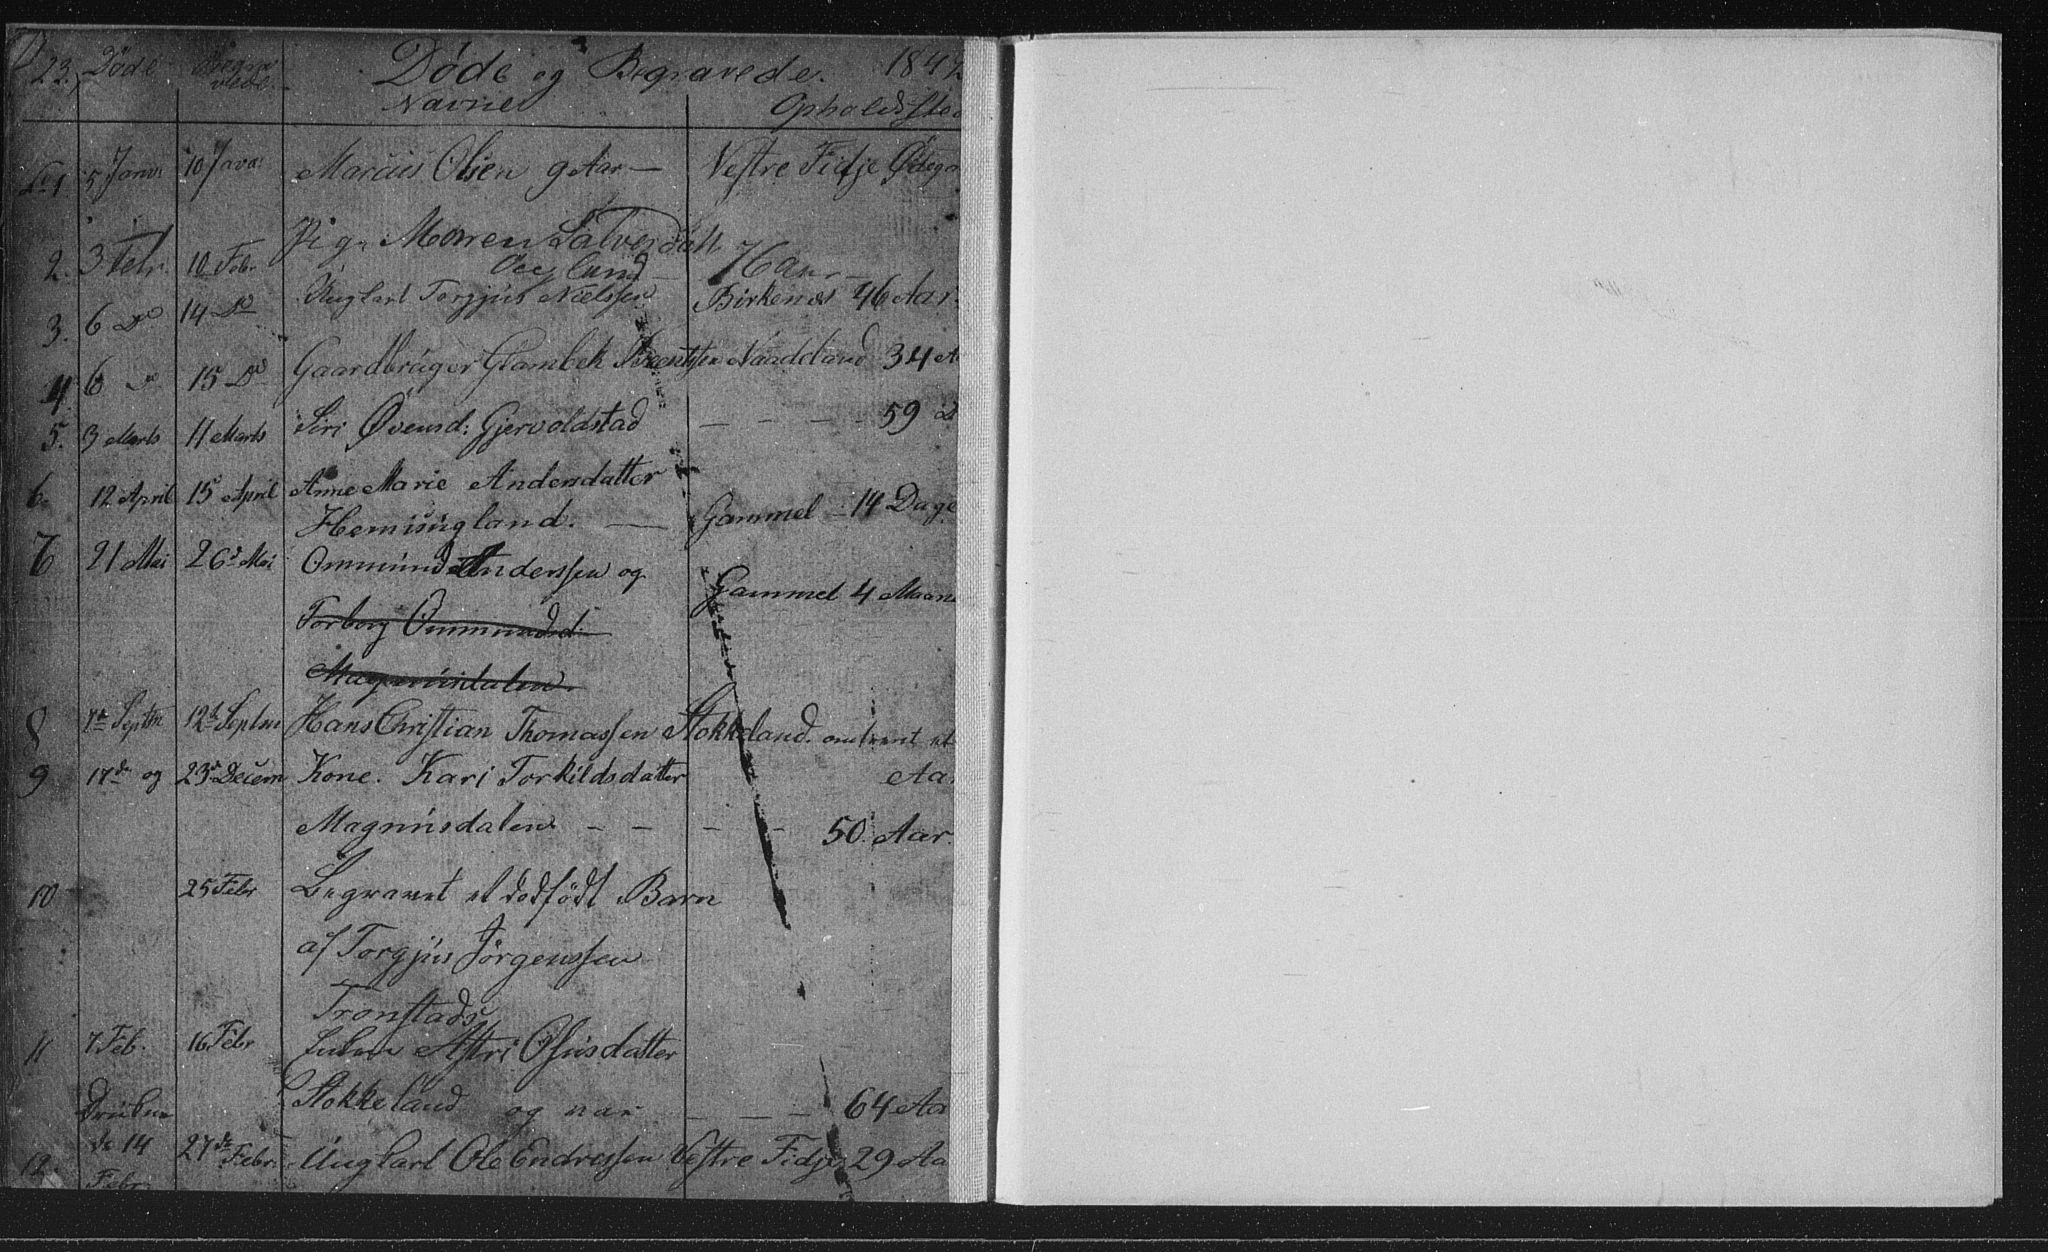 23. Døde Begravede. Døde og Begravede. 184
Navne Opholdsste
1. 5 Janv: 10 Janva: Marcus Olsen 9 Aar — Vestre Fidje Ødega
2. 3 Febr. 10 Febr Pig. Maren Salvesdatt
Øeglund — 76 Aar —
3. 6 Do 14 Do Ungkarl Torgjus Nielssen Birkenes 46 Aar.
4. 6 Do 15 Do Gaardbruger Glambek Naadeland 34 A
5. 3 Marts 11 Marts Siri Øvensd: Gjervoldstad — — — — 59 D
6. 12 April 15 April Anne Marie Andersdatter
Hemisigland. — Gammel — 14 Dage
7 21 Mai 26d Mai Ommund Anderssen og
Gammel 4 Maan
Torborg Ommundsd:
Magnusdalen
8 7de Septm 12te Septm Hans Christian Thomassen Stokkeland. omtrent et
9 17de og 23de Decem Kone. Kari Torkildsdatter Aar
Magnusdalen — — — — 50. Aar.
10 25 Febr Begravet et dødfødt Barn
af Torgjus Jörgenssen
Tronstad
11 7 Feb. 16 Febr Astri Osusdatter
Stokkeland og var — — — 64 Aar
de 14
12. Febr. 27de Febr. Ungkarl Ole Endressen Vestre Fidje 29 Aa